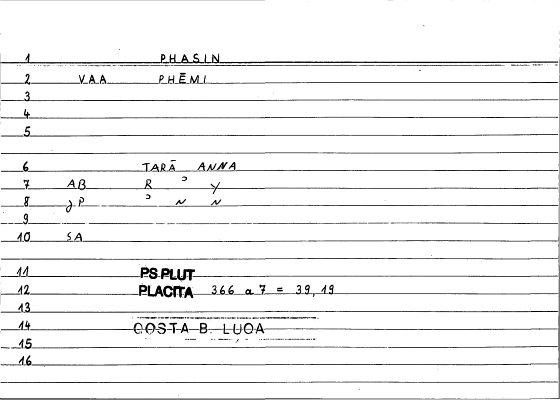 1 PHASIN
2 VAA PHĒMI
3
4
5
6 TARĀ ANNA
7 AB R ˀ Y
8 JP ˀ N N
9
10 SA
11 PS.PLUT
12 PLACITA 366 a 7 = 39,19
13
14 COSTA B. LUQA
15
16